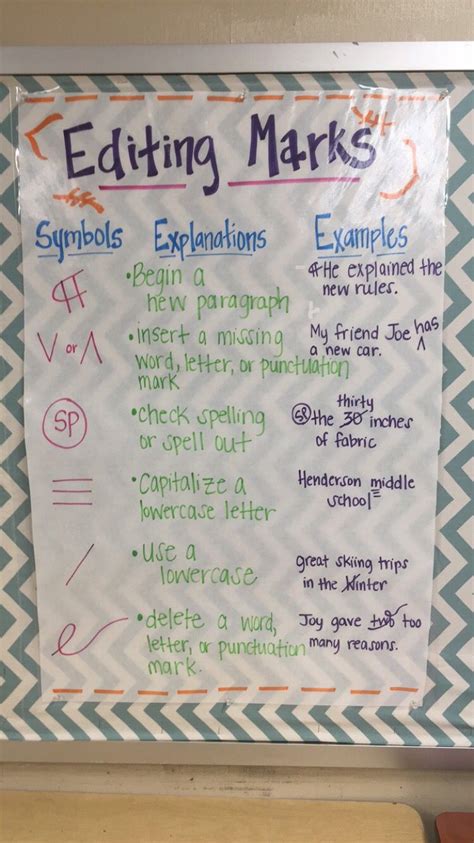 Editing Marks
Symbols Explanations Examples
¶ •Begin a new paragraph ¶He explained the new rules.
V or Λ •insert a missing word, letter, or punctuation mark My friend Joe has Λ a new car.
SP •check spelling or spell out SP the 30 thirty inches of fabric
•Capitalize a lowercase letter Henderson middle school
/ •use a lowercase great skiing trips in the Winter
•delete a word, letter, or punctuation mark. Joy gave two too many reasons.